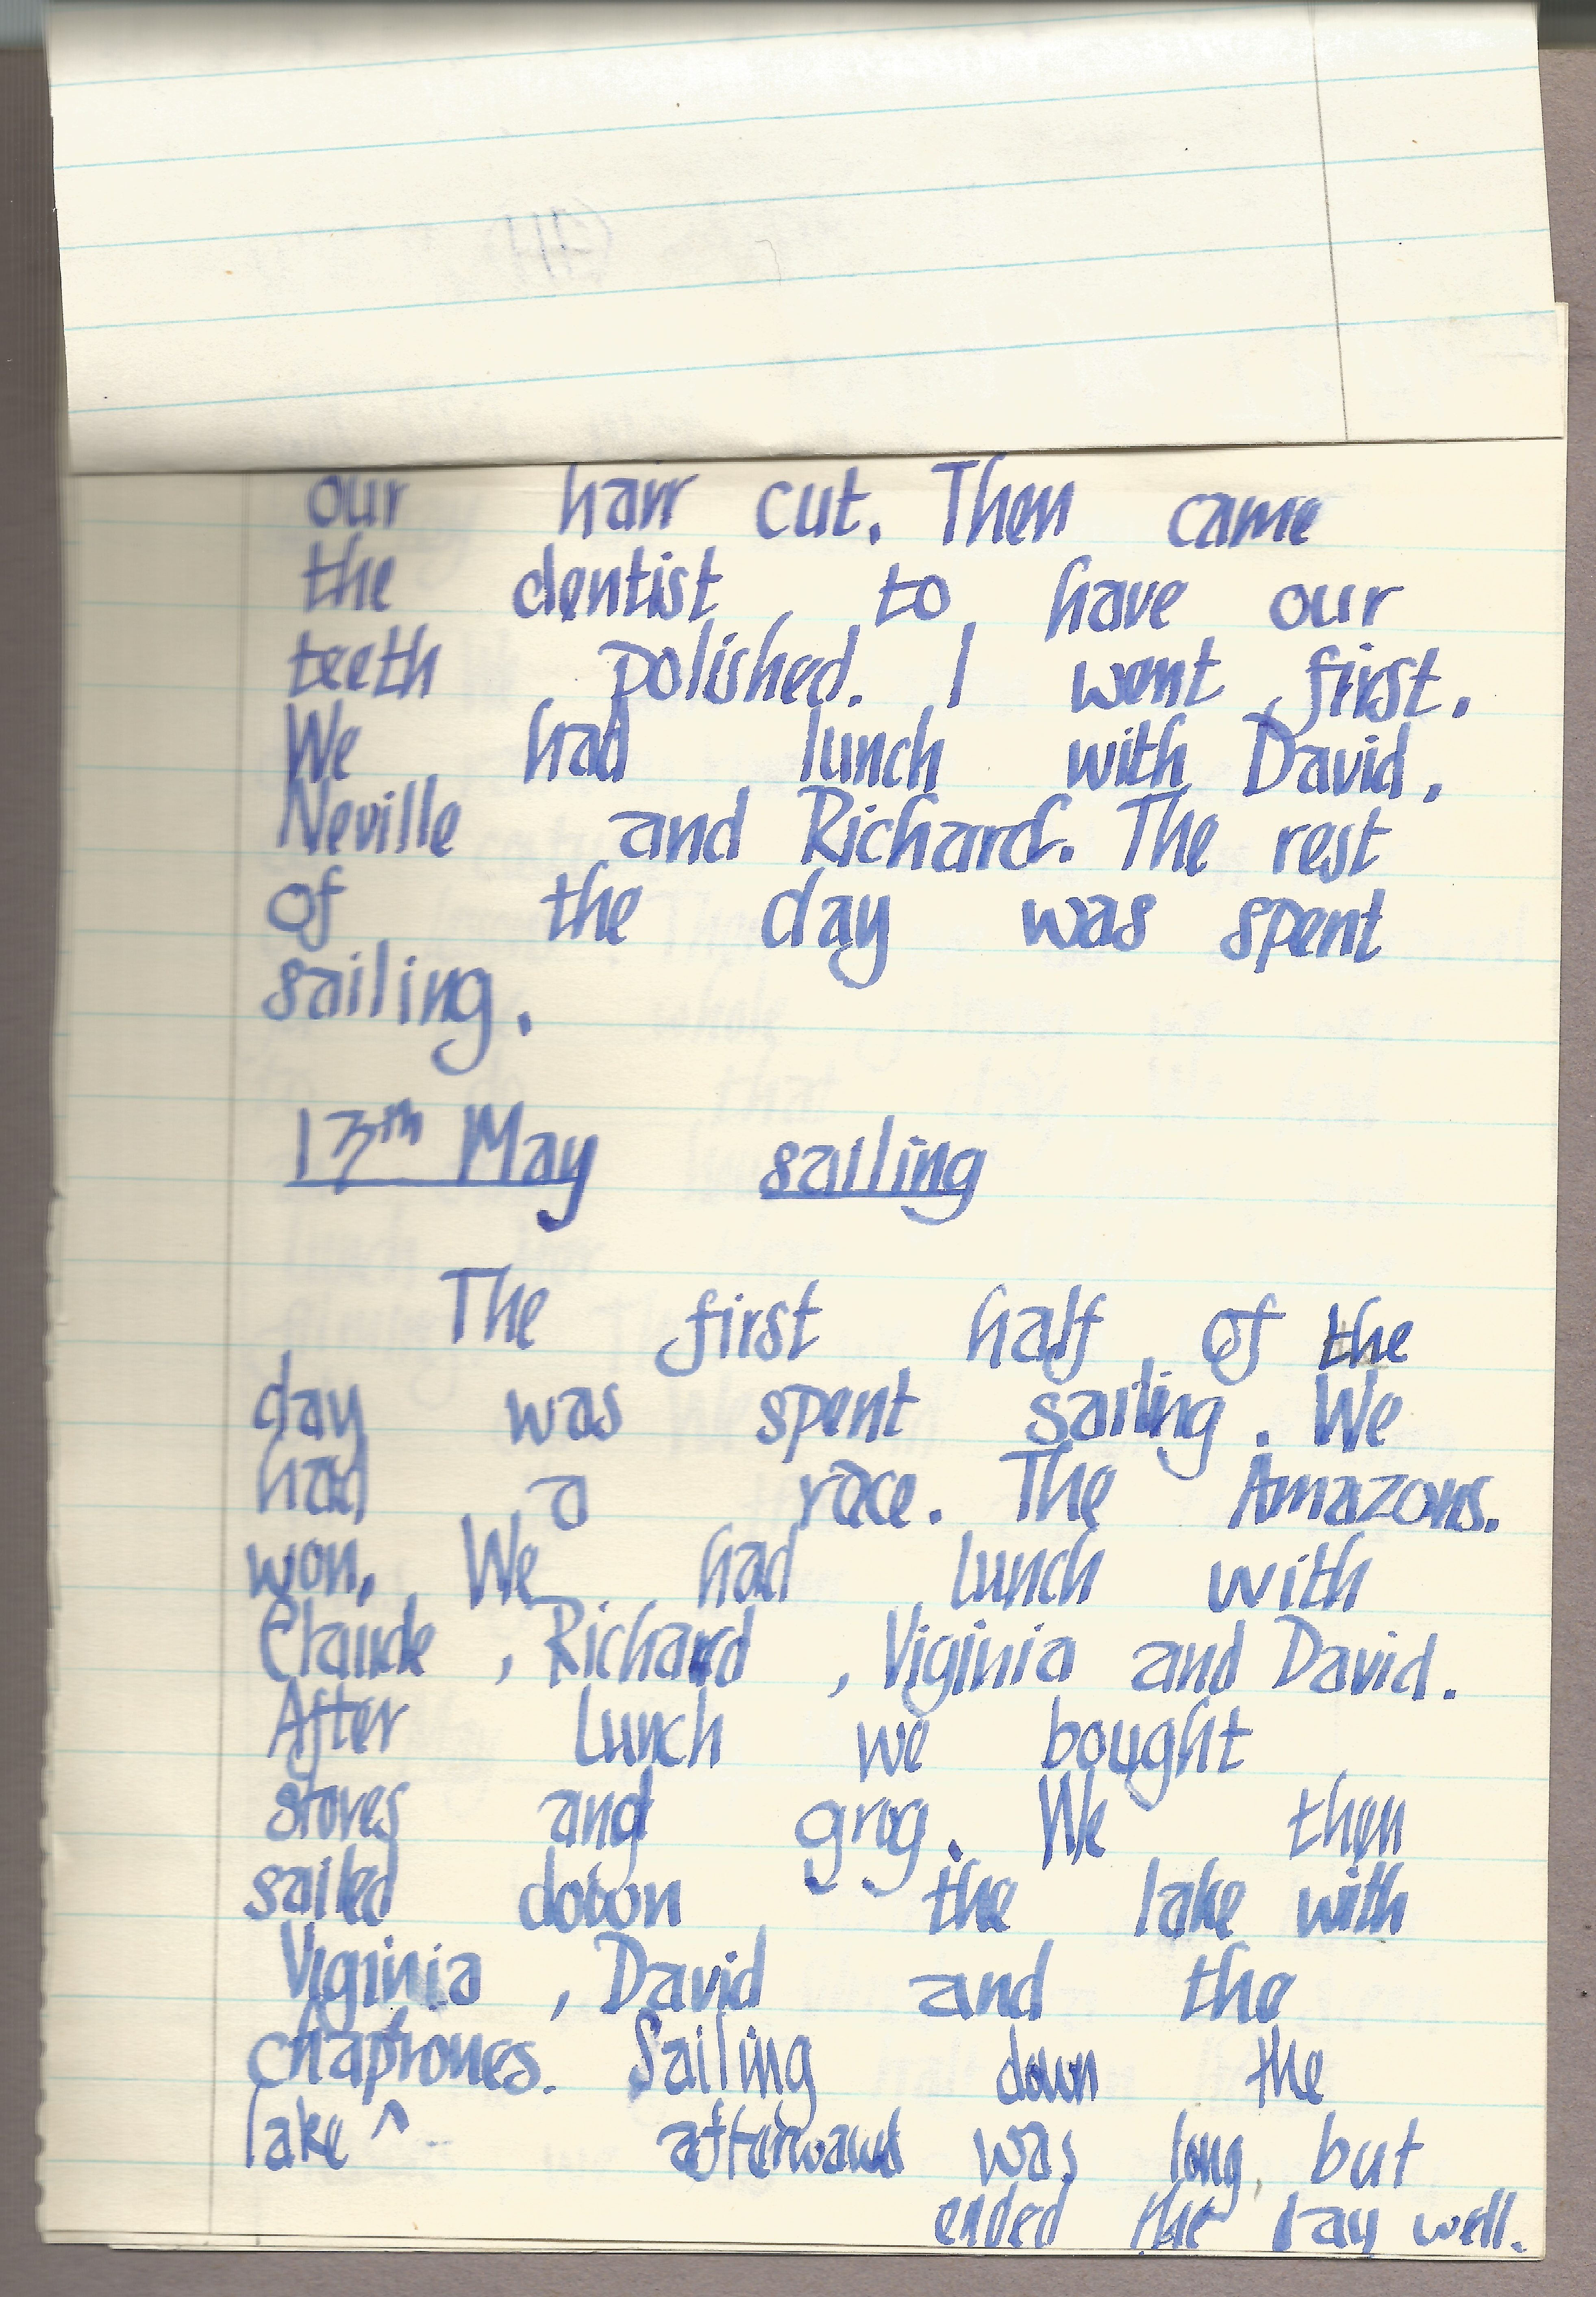 our hair cut. Then came
the dentist to have our
teeth polished. I went first.
We had lunch with David,
Neville and Richard. The rest
of the day was spent
sailing.
13th May sailing
The first half of the
day was spent sailing. We
had a race. The Amazons.
won. We had lunch with
Claude, Richard, Viginia and David.
After lunch we bought
stores and grog. We then
sailed down the lake with
Viginia, David and the
chaprones. Sailing down the
lake ^ afterward was long, but
ended the day well.